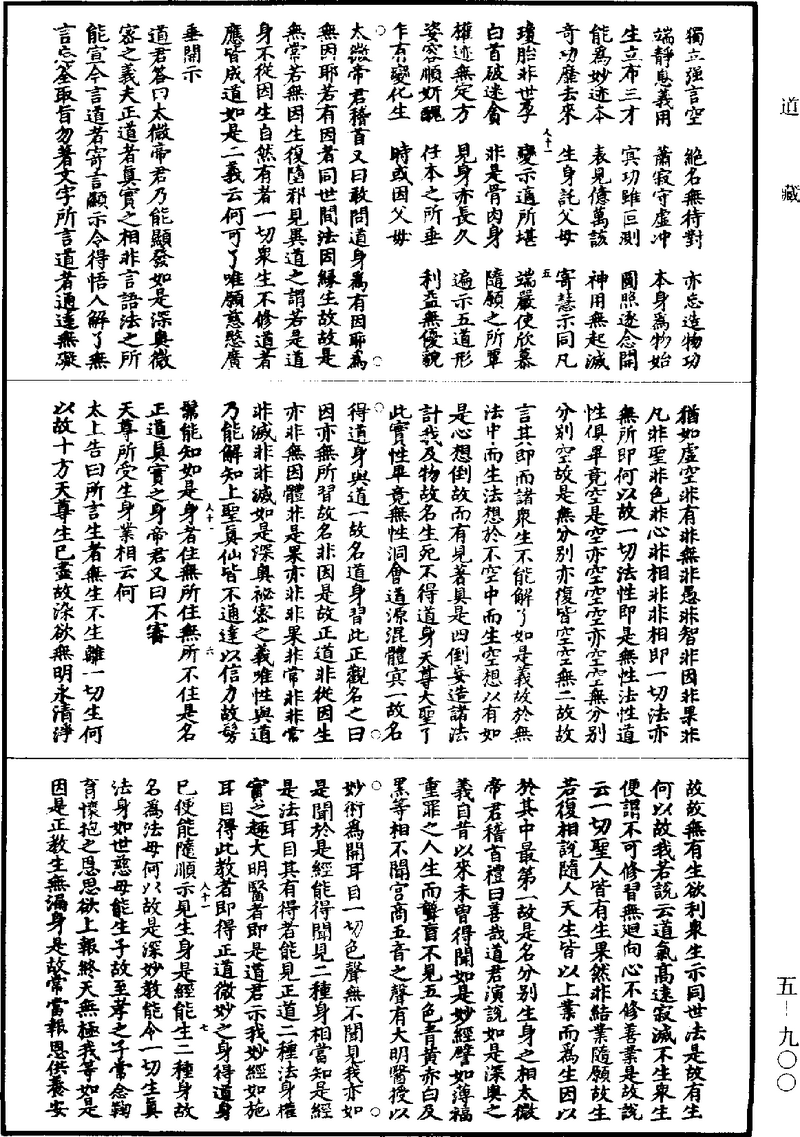 道藏
獨立强言空　絕名無待對　亦忘造物功
端靜息義用　蕭寂守虛冲　本身爲物始
生立布三才　冥功雖叵測　圓照逐念開
能爲妙迹本　表見億萬該　神用無起滅
奇功歷去來　生身託父母　寄慧示同凡
瓊胎非世孕　變示適所堪　端嚴使欣慕
白首破迷貪　非是骨肉身　隨願之所單
權迹無定方　見身亦長久　遍示五道形
姿容順妍醜　任本之所垂　利益無優
乍有變化生　時或因父母
太微帝君稽首又曰敢問道身爲有因耶爲
無因耶若有因者同世間法因緣生故故是
無常若無因生復墮邪見異道之謂若是道
身不從因生自然有者一切衆生不修道者
應皆成道如是二義云何可了唯願慈愍廣
垂開示
道君答曰太微帝君乃能顯發如是深奧微
密之義夫正道者真實之相非言語法之所
能宣令言道者寄言顯示令得悟入解了無
言忘筌取旨勿著文字所言道者通達無礙
猶如虛空非有非無非愚非智非因非果非
凡非聖非色非心非相非非相即一切法亦
無所即何以故一切法性即是無性法性道
性俱畢竟空是空亦空空空亦空空無分別
分別空故是無分別亦復皆空空無二故故
言其即而諸衆生不能解了如是義故於無
法中而生法想於不空中而生空想以有如
是心想倒故而有見著具是四倒妄造諸法
計我及物故名生死不得道身天尊大聖了
此實性畢竟無性洞會道源混體冥一故名
得道身與道一故名道身習此正觀名之曰
因亦無所習故名非因是故正道非從因生
亦非無因體非是果亦非非果非常非非常
非滅非非滅如是深奧祕密之義唯性與道
乃能解知上聖真仙皆不通達以信力故髣
髴能知如是身者住無所住無所不住是名
正道真實之身帝君又曰不審
天尊所受生身業相云何
太上告曰所言生者無生不生離一切生何
以故十方天尊生已盡故染欲無明永清淨
故故無有生欲利衆生示同世法是故有生
何以故我若說云道氣高遠寂滅不生衆生
便謂不可修習無迴向心不修善業是故說
云一切聖人皆有生果然非結業隨願故生
若復相說隨人天生皆以上業而爲生因以
於其中最第一故是名分別生身之相太微
帝君稽首禮曰善哉道君演說如是深奧之
義自昔以來未曾得聞如是妙經譬如薄福
重罪之人生而聾盲不見五色青黃赤白及
黑等相不聞宮商五音之聲有大明醫授以
妙術爲開耳目一切色聲無不聞見我亦如
是聞於是經能得聞見二種身相當知是經
是法耳目其有得者能見正道二種法身權
實之極大明醫者即是道君示我妙經如施
耳目得此教者即得正道微妙之身得道身
已便能隨順示見生身是經能生二種身故
名爲法母何以故是深妙教能令一切生真
法身如世慈母能生子故至孝之子常念鞠
育懷抱之恩思欲上報終天無極我等如是
因是正教生無漏身是故常當報恩供養安
五－九〇〇